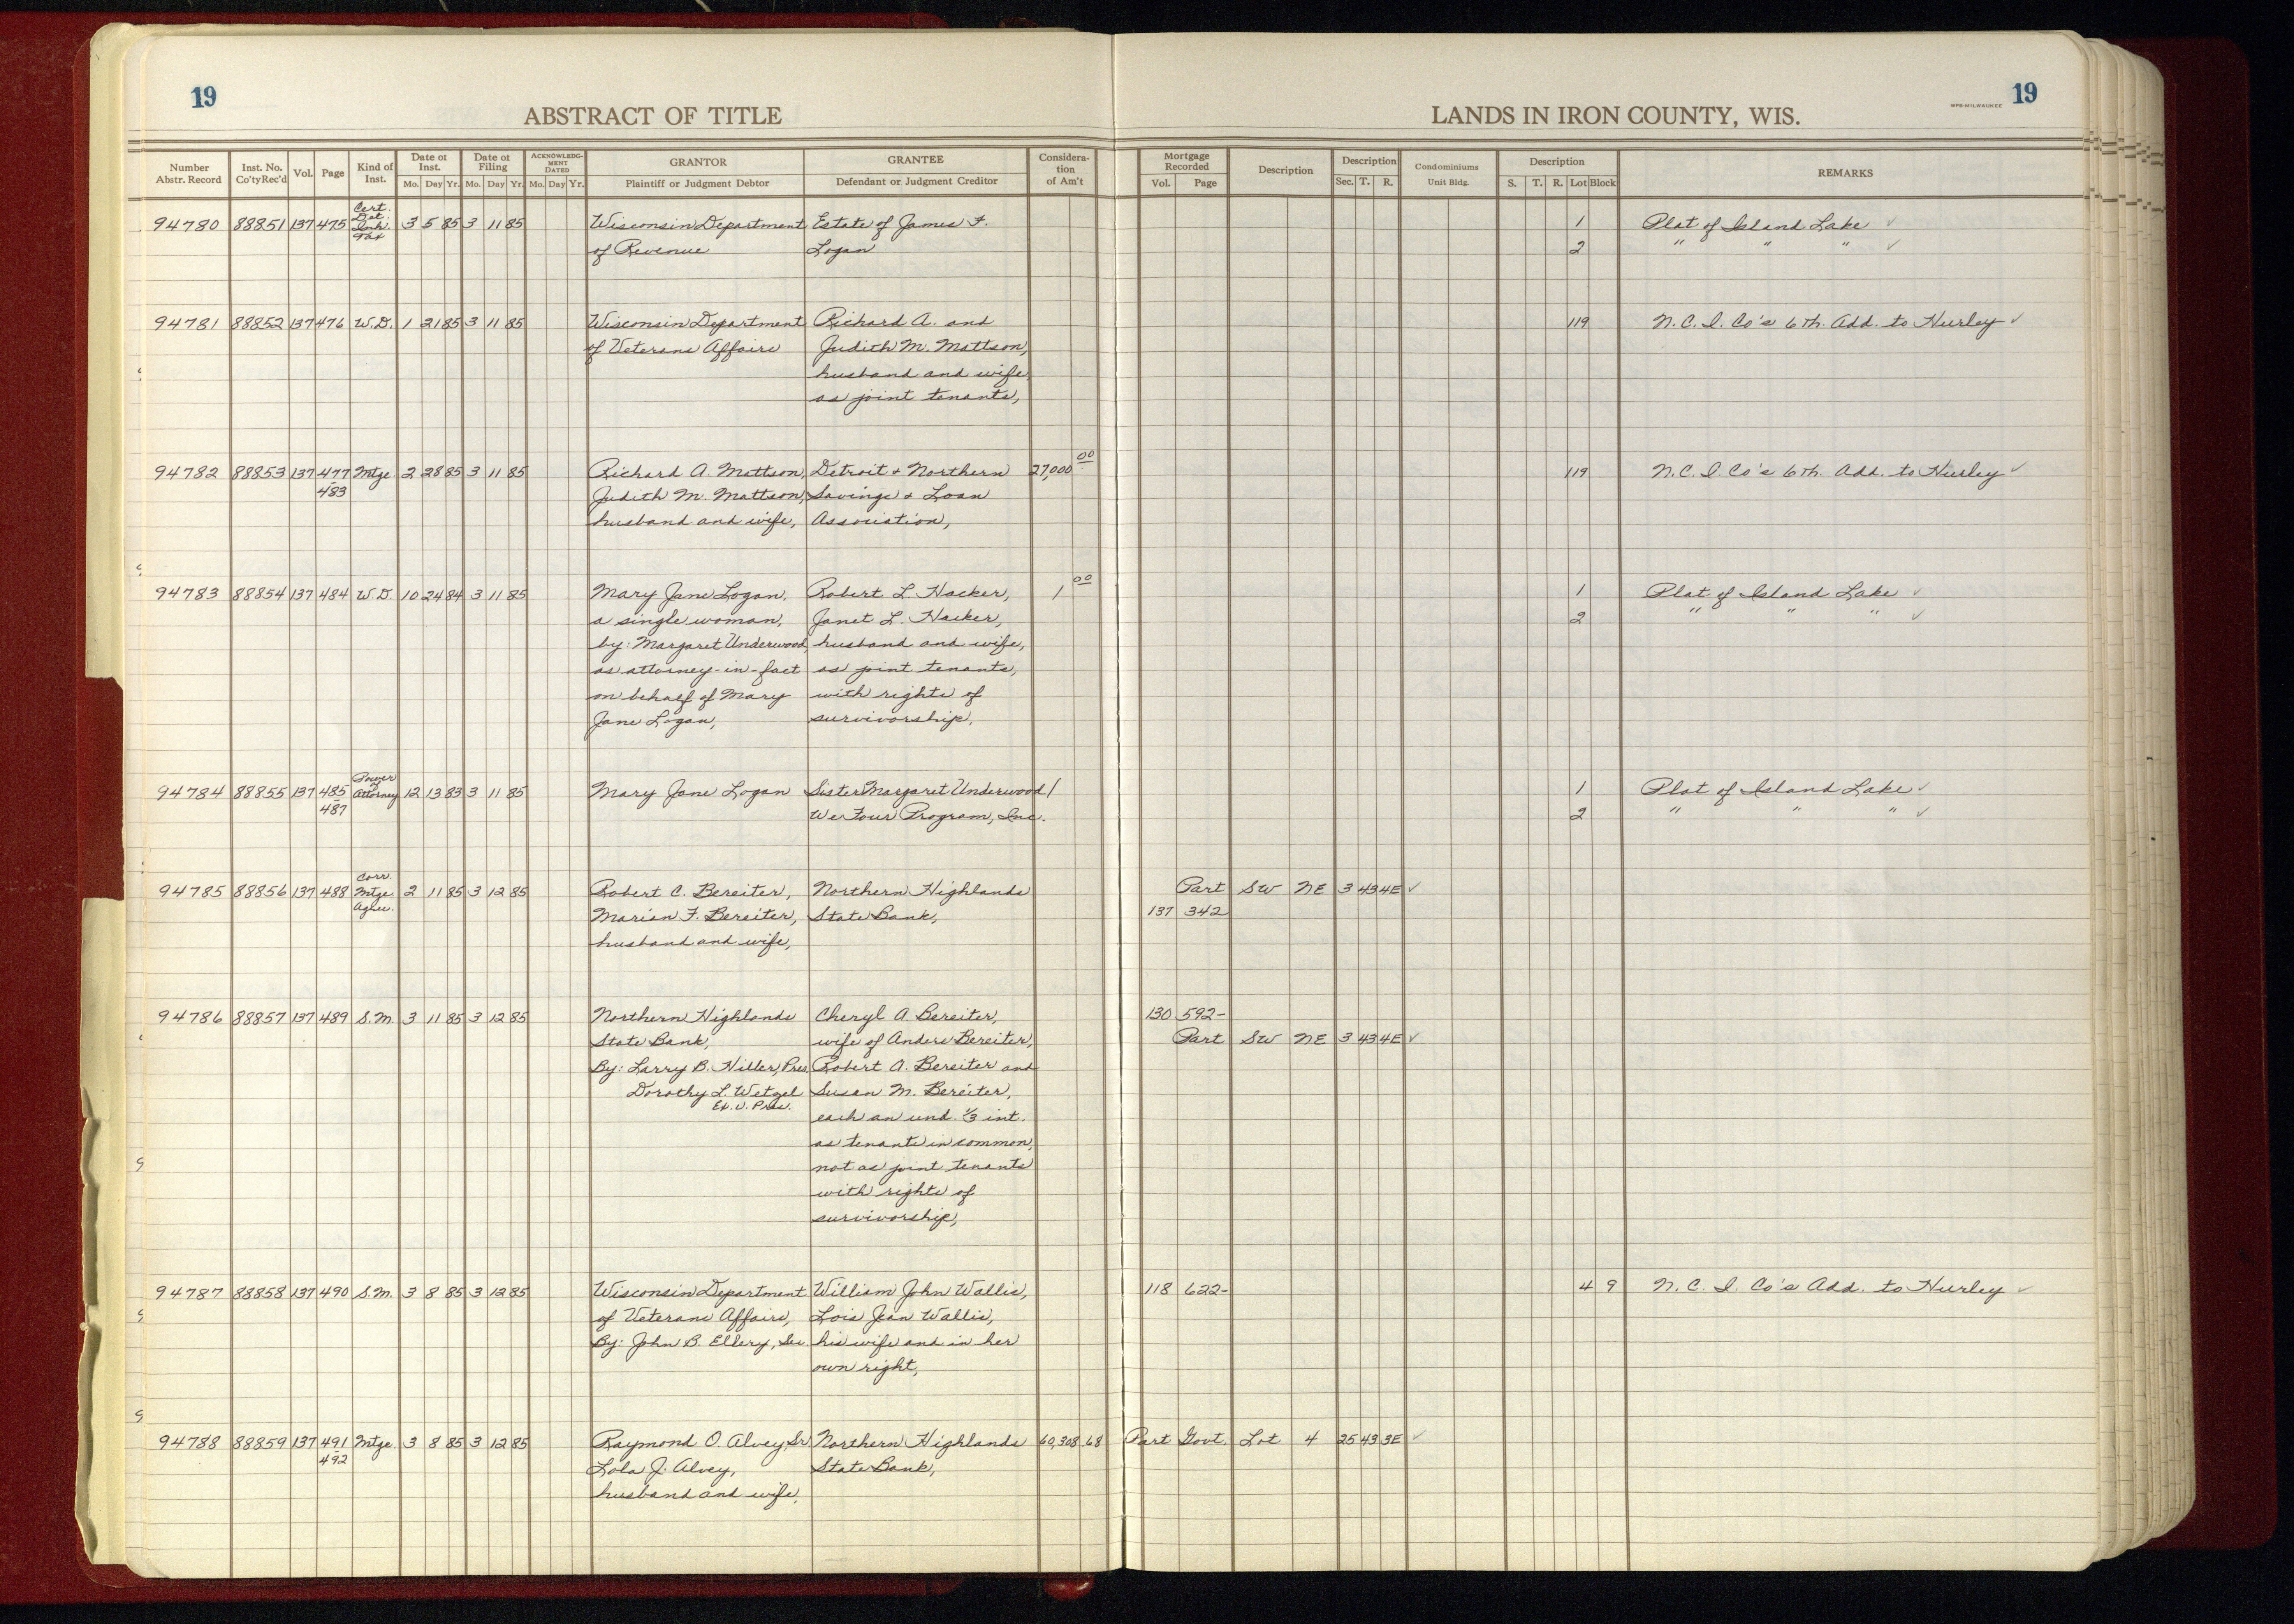 19
ABSTRACT OF TITLE
LANDS IN IRON COUNTY, WIS.
WPB-MILWAUKEE
19
Number Abstr. Record | Inst. No. Co'ty Rec'd | Vol. | Page | Kind of Inst. | Date of Inst. Mo. Day Yr. | Date of Filing Mo. Day Yr. | ACKNOWLEDG-MENT DATED Mo. Day Yr. | GRANTOR Plaintiff or Judgment Debtor | GRANTEE Defendant or Judgment Creditor | Considera-tion of Am't | Mortgage Recorded Vol. Page | Description | Description Sec. T. R. | Condominiums Unit Bldg. | Description S. T. R. Lot Block | REMARKS
94780 88851 137 475 Cert. Det. Inh. Tax 3 5 85 3 11 85 Wisconsin Department Estate of James F. 1 Plat of Island Lake ✓
of Revenue Logan 2 " " " ✓
94781 88852 137 476 W.D. 1 21 85 3 11 85 Wisconsin Department Richard A. and 119 N.C.I. Co's 6th. Add. to Hurley ✓
of Veterans Affairs Judith M. Mattson,
husband and wife,
as joint tenants,
94782 88853 137 477-483 Mtge 2 28 85 3 11 85 Richard A. Mattson, Detroit & Northern 27,000 00 119 N.C.I. Co's 6th. Add. to Hurley ✓
Judith M. Mattson, Savings & Loan
husband and wife, Association,
94783 88854 137 484 W.D. 10 24 84 3 11 85 Mary Jane Logan, Robert L. Hacker, 1 00 1 Plat of Island Lake ✓
a single woman, Janet L. Hacker, 2 " " " ✓
by: Margaret Underwood, husband and wife,
as attorney-in-fact as joint tenants,
on behalf of Mary with rights of
Jane Logan, survivorship,
94784 88855 137 485-487 Power of Attorney 12 13 83 3 11 85 Mary Jane Logan Sister Margaret Underwood/ 1 Plat of Island Lake ✓
We Four Program, Inc. 2 " " " ✓
94785 88856 137 488 Corr. Mtge Agree. 2 11 85 3 12 85 Robert C. Bereiter, Northern Highlands Part SW NE 3 43 4E ✓
Marian F. Bereiter, State Bank, 137 342
husband and wife,
94786 88857 137 489 S.M. 3 11 85 3 12 85 Northern Highlands Cheryl A. Bereiter, 130 592-
State Bank, wife of Anders Bereiter, Part SW NE 3 43 4E ✓
By: Larry B. Hiller, Pres. Robert A. Bereiter and
Dorothy L. Wetzel Susan M. Bereiter,
Ex. V. Pres. each an und. 1/3 int.
as tenants in common,
not as joint tenants
with rights of
survivorship,
94787 88858 137 490 S.M. 3 8 85 3 12 85 Wisconsin Department William John Wallis, 118 622- 4 9 N.C.I. Co's Add. to Hurley ✓
of Veterans Affairs, Lois Jean Wallis,
By: John B. Ellery, Sec. his wife and in her
own right,
94788 88859 137 491-492 Mtge. 3 8 85 3 12 85 Raymond O. Alvey, Sr. Northern Highlands 60,308.68 Part Govt. Lot 4 25 43 3E ✓
Lola J. Alvey, State Bank,
husband and wife,